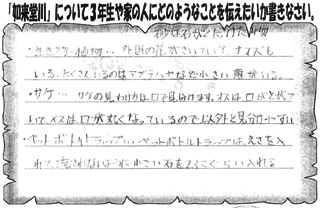 「如来堂川」について3年生や家の人にどのようなことを伝えたいか書きなさい。
・生き物 植物… 外国の花がさいていて、ナマズも
いる。たくさんいるのはアブラハヤなど小さい魚がいる。
・サケ… サケの見わけ方は口で見分けます。オスは口が
いて、メスは口が丸くなっているので以外と見分けやすい
・ペットボトルトラップ…ペットボトルトラップは、えさを入
れて、ように小さい石を2、3こぐらい入れる。